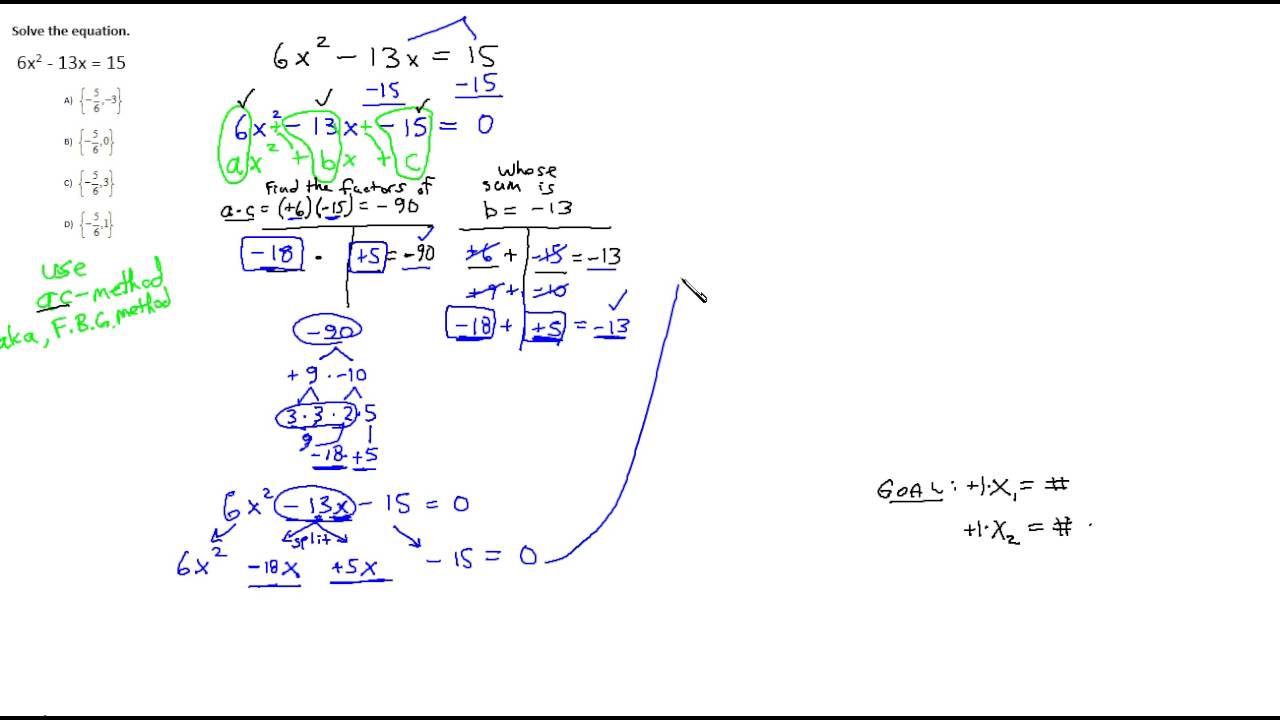 Solve the equation.
6x² - 13x = 15
A) {-5/6, -3}
B) {-5/6, 0}
C) {-5/6, 3}
D) {-5/6, 1}
use
ac-method
aka, F.B.G. method
6x² - 13x = 15
-15 -15
6x² + - 13x + - 15 = 0
ax² + bx + c
Find the factors of
a·c = (+6)(-15) = -90
whose
sum is
b = -13
-18 · +5 = -90
+6 + -15 = -13
+9 + -10
-18 + +5 = -13
-90
+9 · -10
3 · 3 · 2 · 5
9
-18 · +5
6x² - 13x - 15 = 0
split
6x² -18x +5x - 15 = 0
GOAL: +1·X₁ = #
+1·X₂ = #